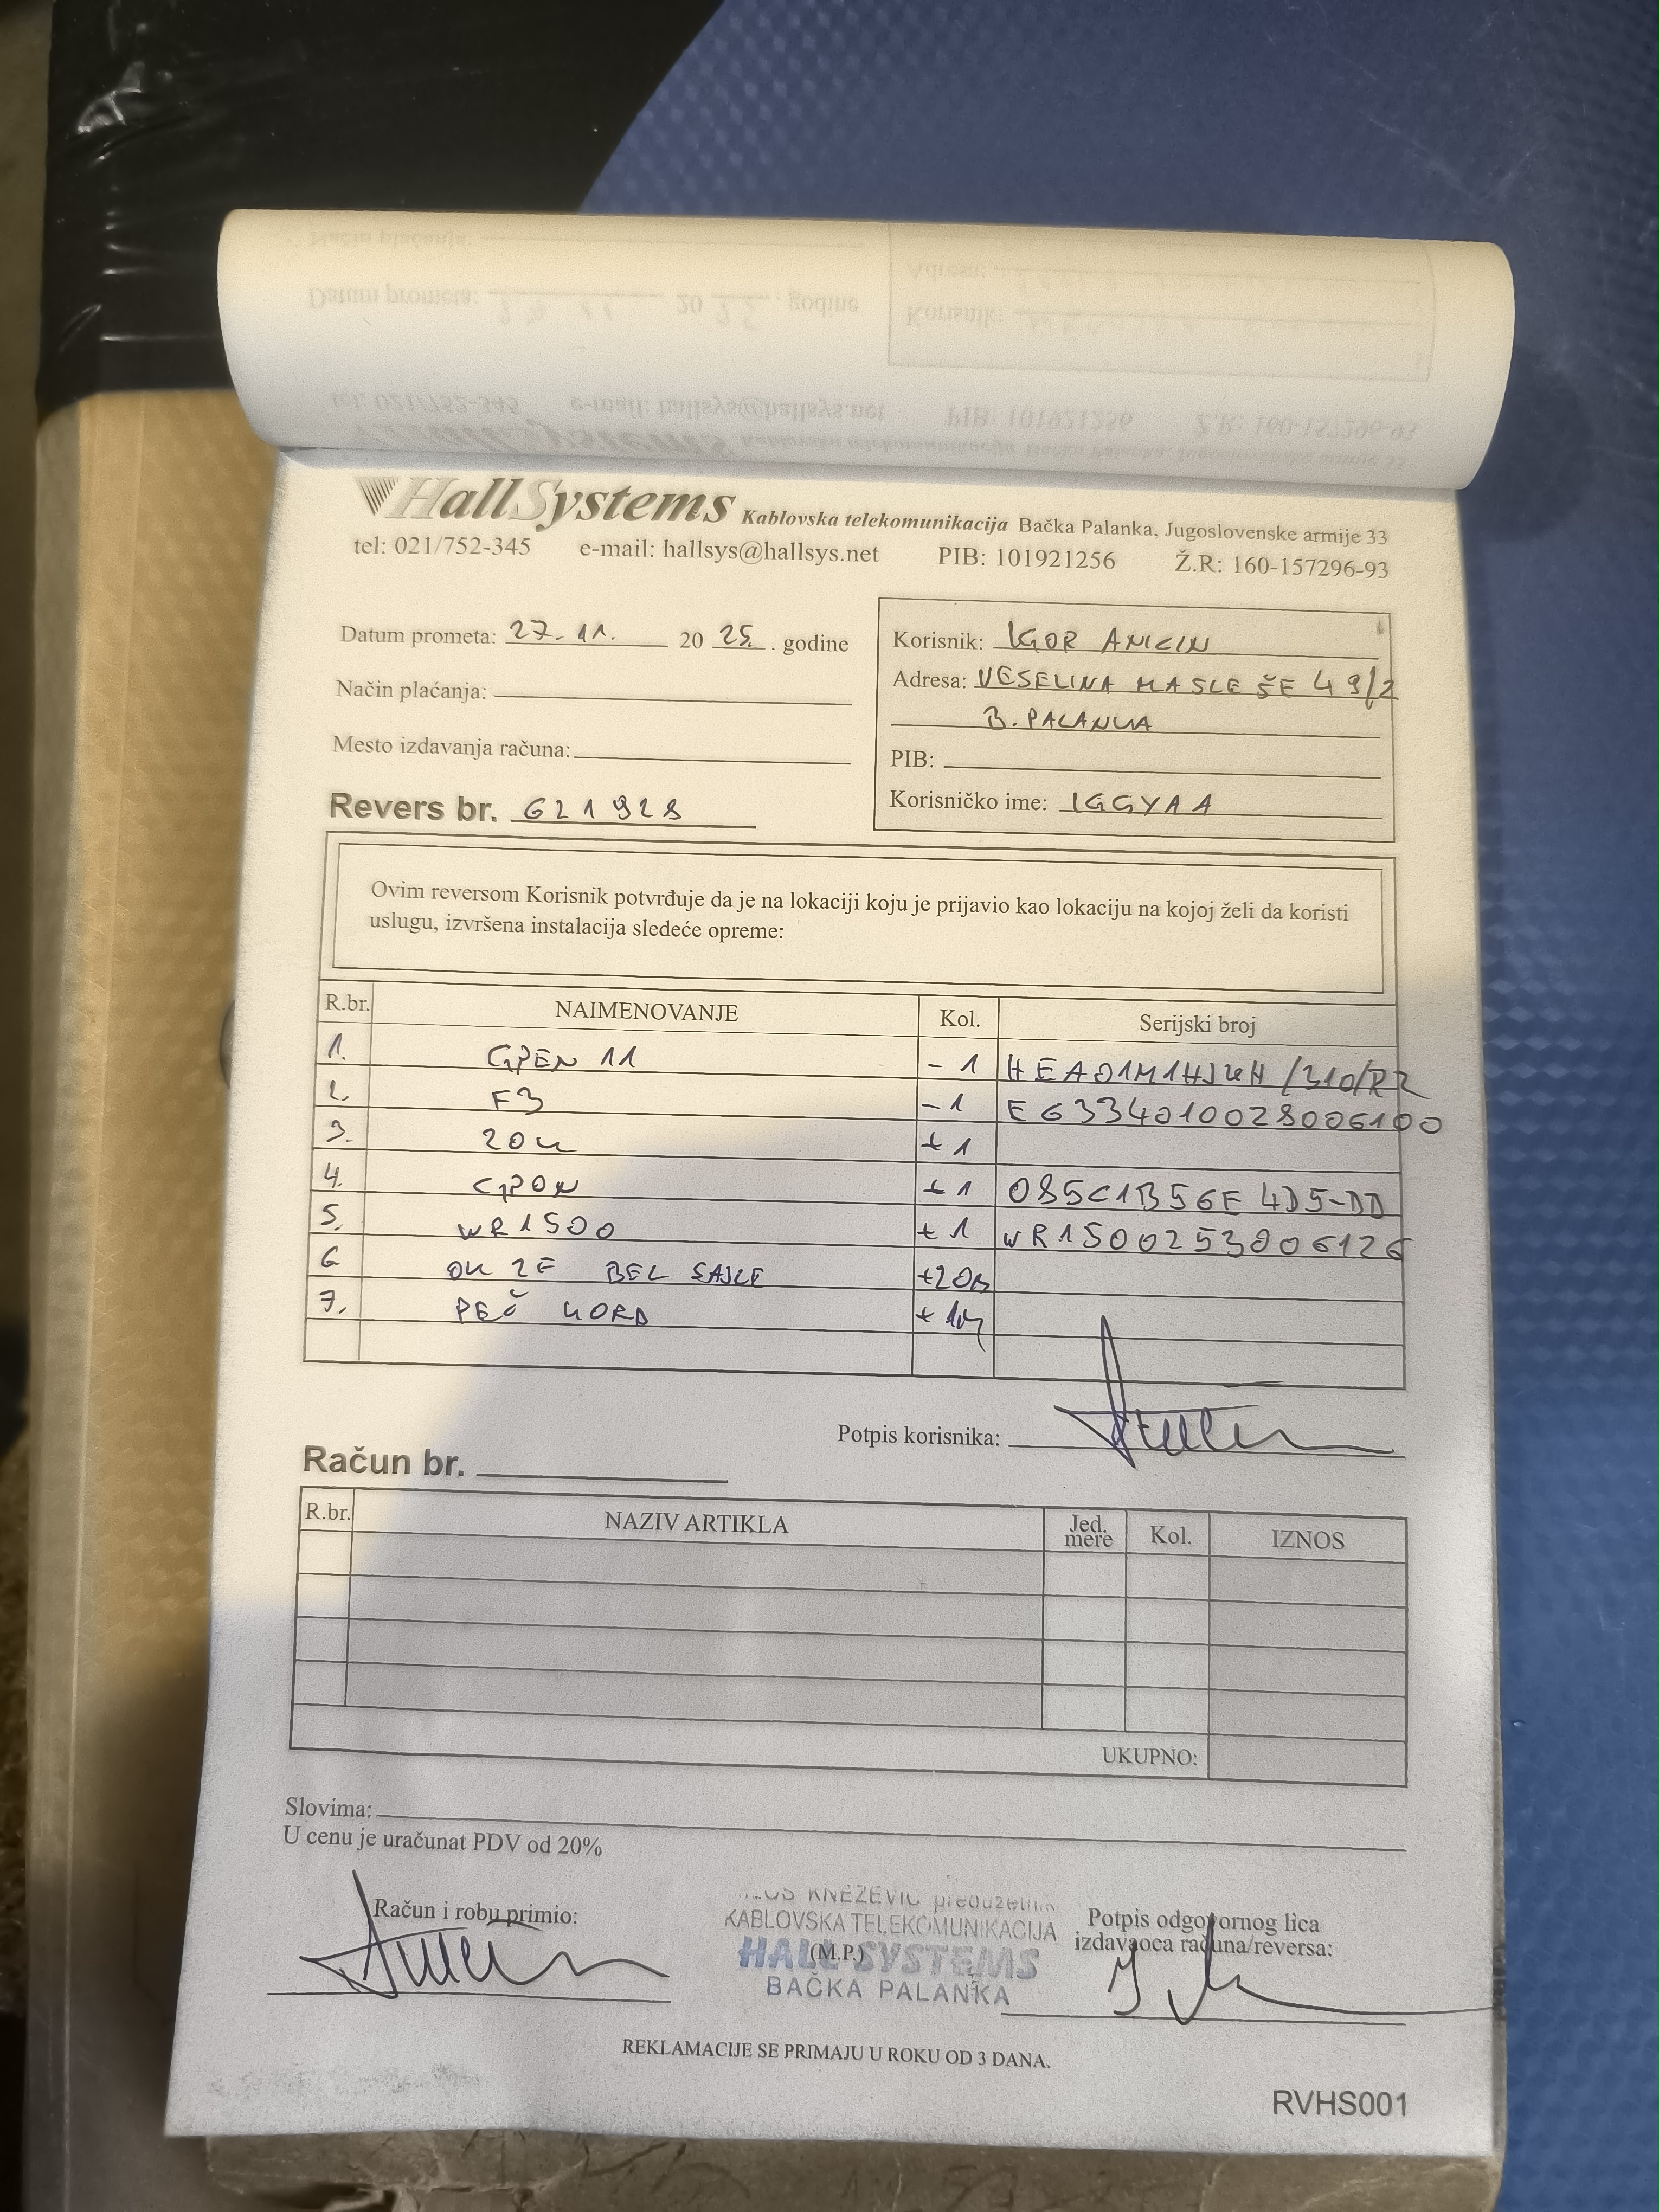 HallSystems Kablovska telekomunikacija Bačka Palanka, Jugoslovenske armije 33
tel: 021/752-345 e-mail: hallsys@hallsys.net PIB: 101921256 Ž.R: 160-157296-93
Datum prometa: 27. 11. 20 25. . godine
Način plaćanja:
Mesto izdavanja računa:
Revers br. 621928
Korisnik: IGOR ANICIN
Adresa: VESELINA MASLEŠE 49/2
B. PALANKA
PIB:
Korisničko ime: IGGYAA
Ovim reversom Korisnik potvrđuje da je na lokaciji koju je prijavio kao lokaciju na kojoj želi da koristi
uslugu, izvršena instalacija sledeće opreme:
R.br. NAIMENOVANJE Kol. Serijski broj
1. GPEN 11 - 1
2. F3 - 1 EG334010028006100
3. + 1
4. GPON + 1 085C1B56E4D5-DD
5. WR1500 + 1 WR1500253006126
6 OK 2F BEZ SAJLE +20m
7. PEČ KORD +
Potpis korisnika:
Račun br.
R.br. NAZIV ARTIKLA Jed. mere Kol. IZNOS
UKUPNO:
Slovima:
U cenu je uračunat PDV od 20%
Račun i robu primio:
KNEŽEVIĆ preduzetnik
KABLOVSKA TELEKOMUNIKACIJA
(M.P.)
HALL SYSTEMS
BAČKA PALANKA
Potpis odgovornog lica
izdavaoca računa/reversa:
REKLAMACIJE SE PRIMAJU U ROKU OD 3 DANA.
RVHS001